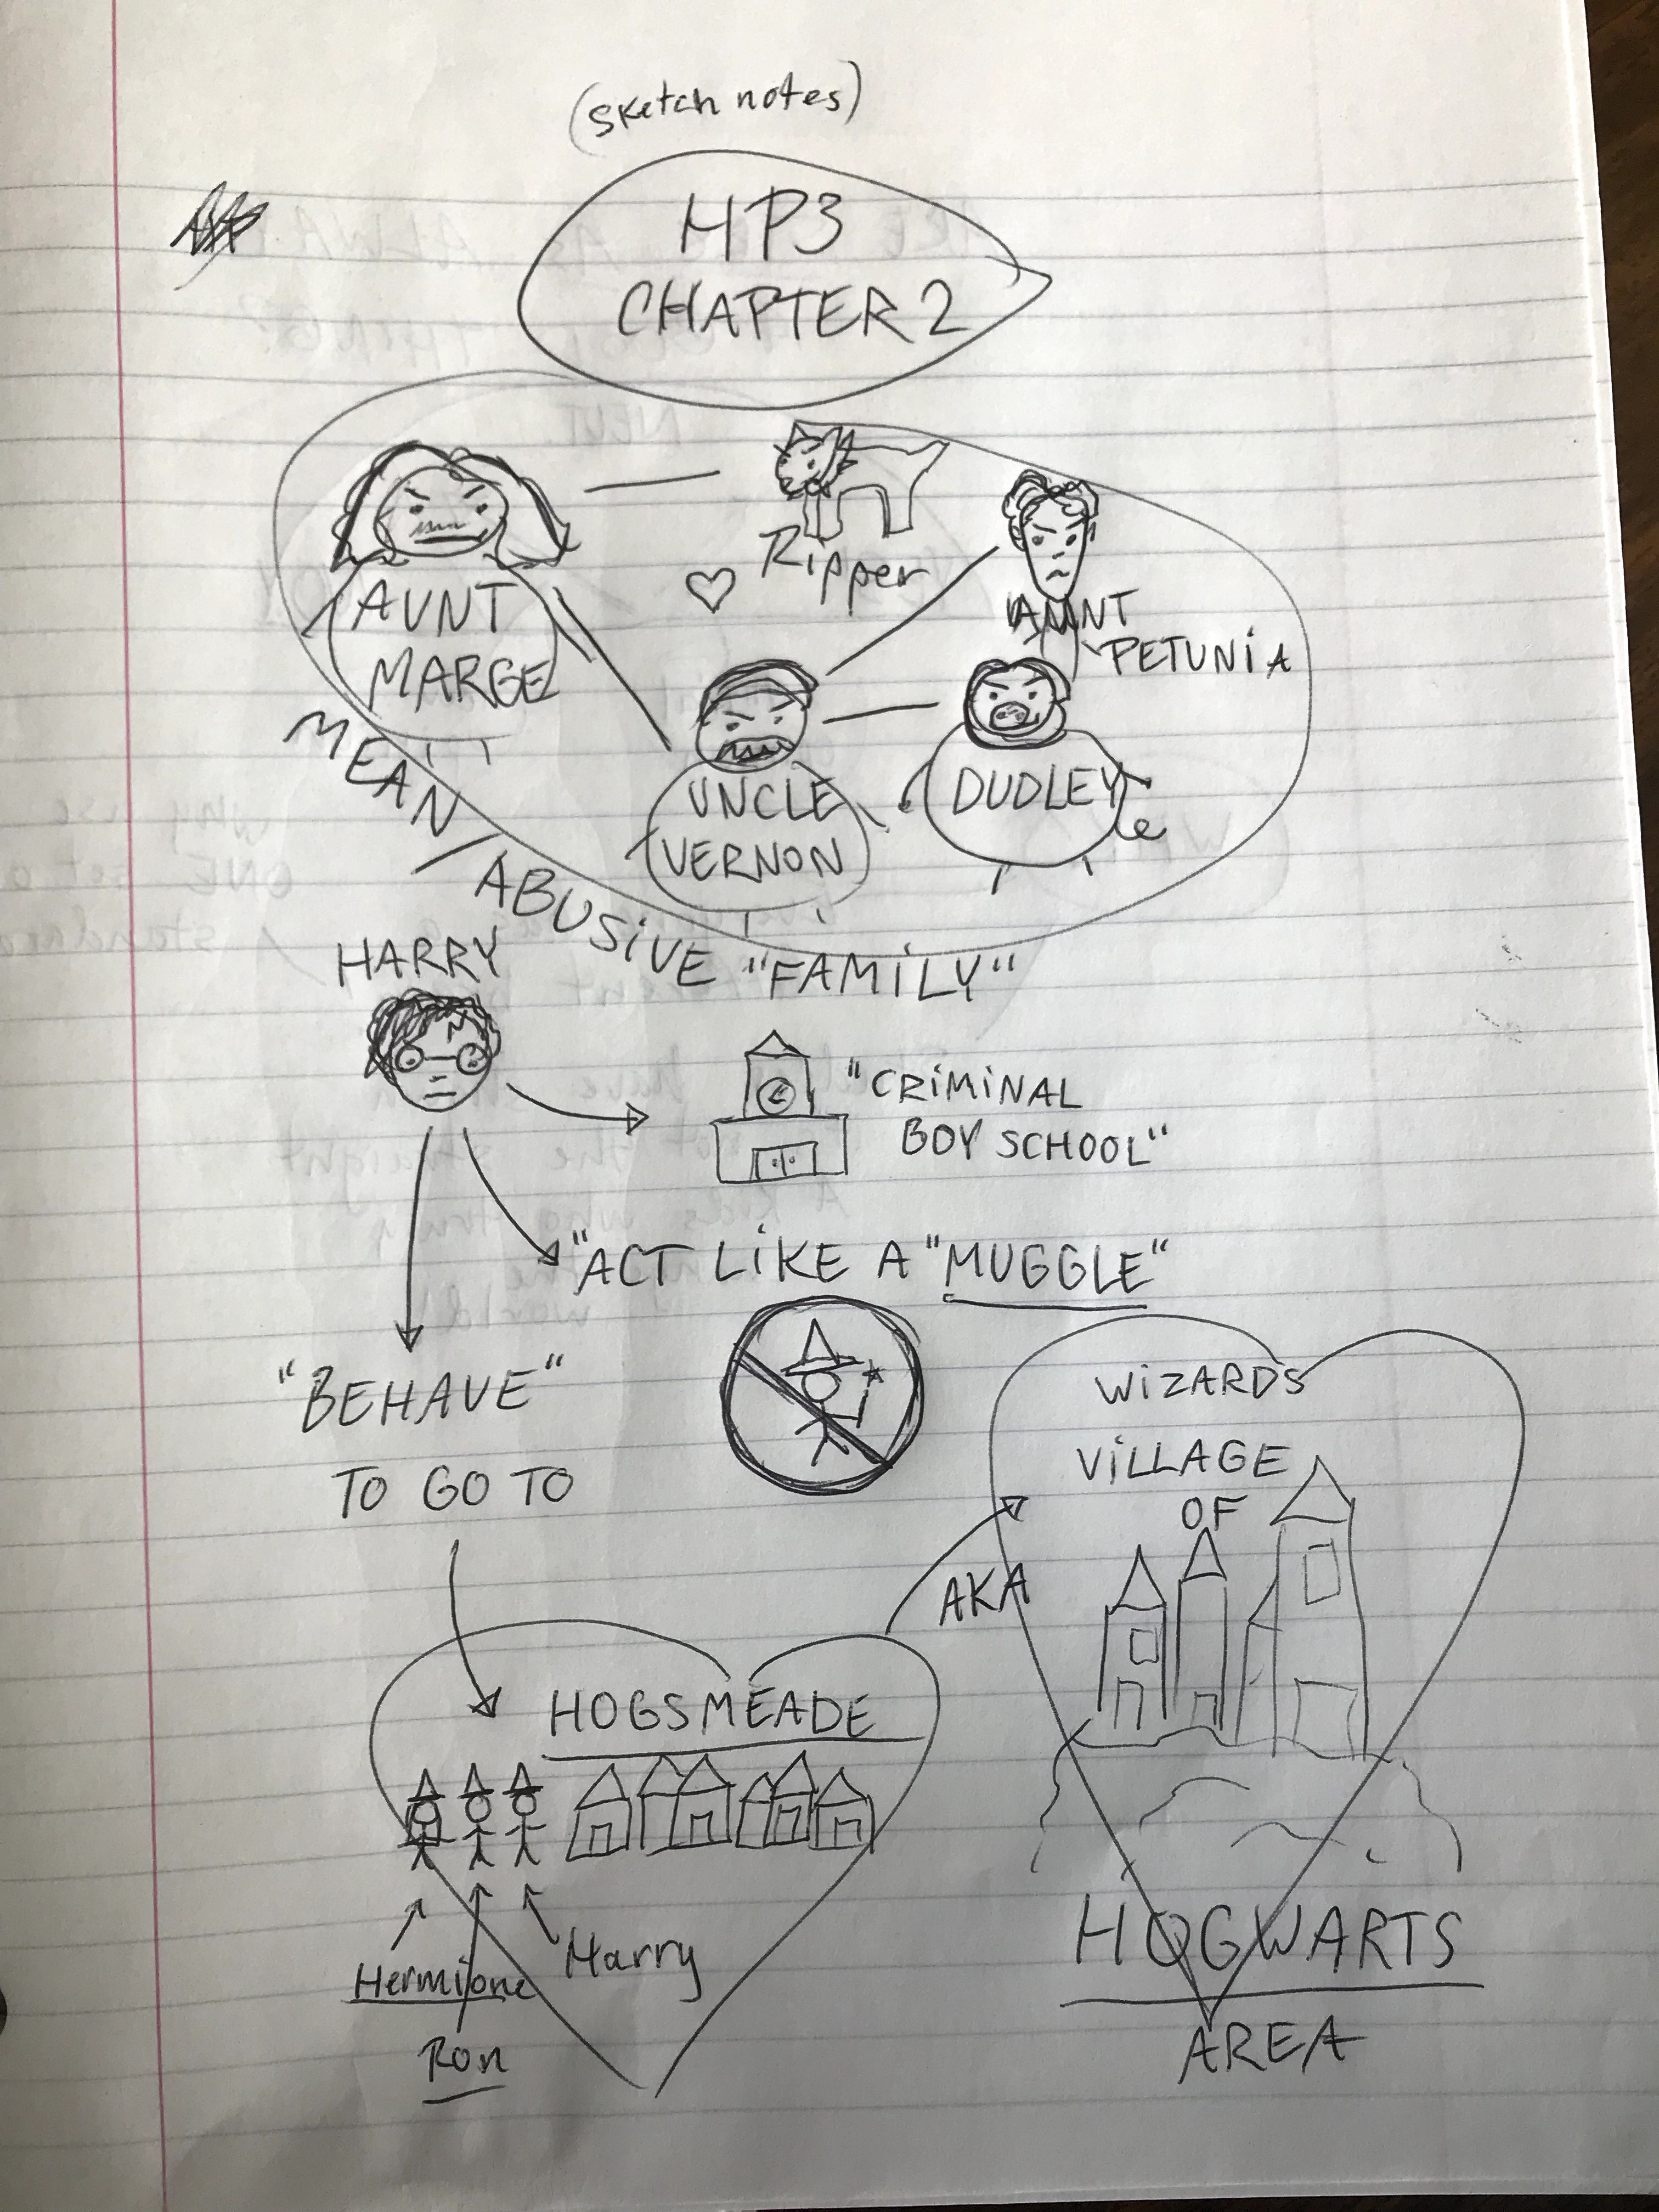 (sketch notes)
HP3
CHAPTER 2
Ripper
AUNT
MARGE
AUNT
PETUNiA
UNCLE
VERNON
DUDLEY
MEAN/ABUSiVE "FAMiLY"
HARRY
"CRiMiNAL
BOY SCHOOL"
"ACT LiKE A "MUGGLE"
"BEHAVE"
TO GO TO
WiZARDS
ViLLAGE
OF
AKA
HOGSMEADE
Hermione
Harry
Ron
HOGWARTS
AREA